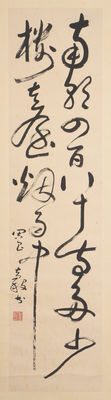 南朝四百八十寺多少
樓臺烟雨中